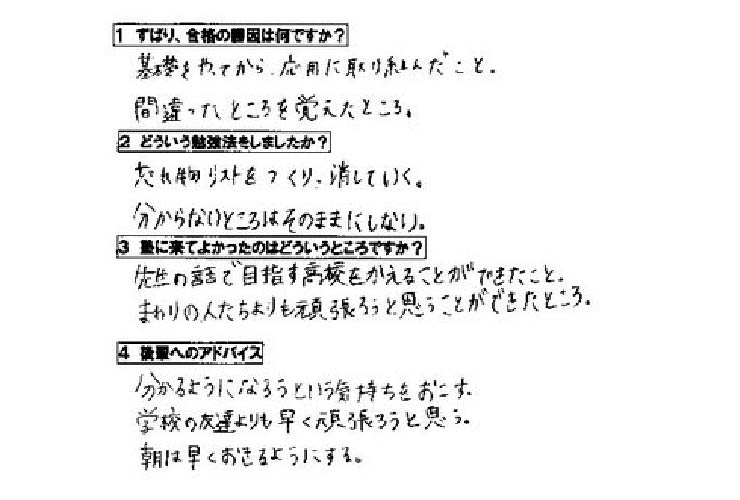 1 ずばり、合格の勝因は何ですか？
基礎をやってから、応用に取り組んだこと。
間違ったところを覚えたところ。
2 どういう勉強法をしましたか？
忘れ物リストをつくり、消していく。
分からないところはそのままにしない。
3 塾に来てよかったのはどういうところですか？
先生の話で目指す高校をかえることができたこと。
まわりの人たちよりも頑張ろうと思うことができたところ。
4 後輩へのアドバイス
分かるようになろうという気持ちをおこす。
学校の友達よりも早く頑張ろうと思う。
朝は早くおきるようにする。